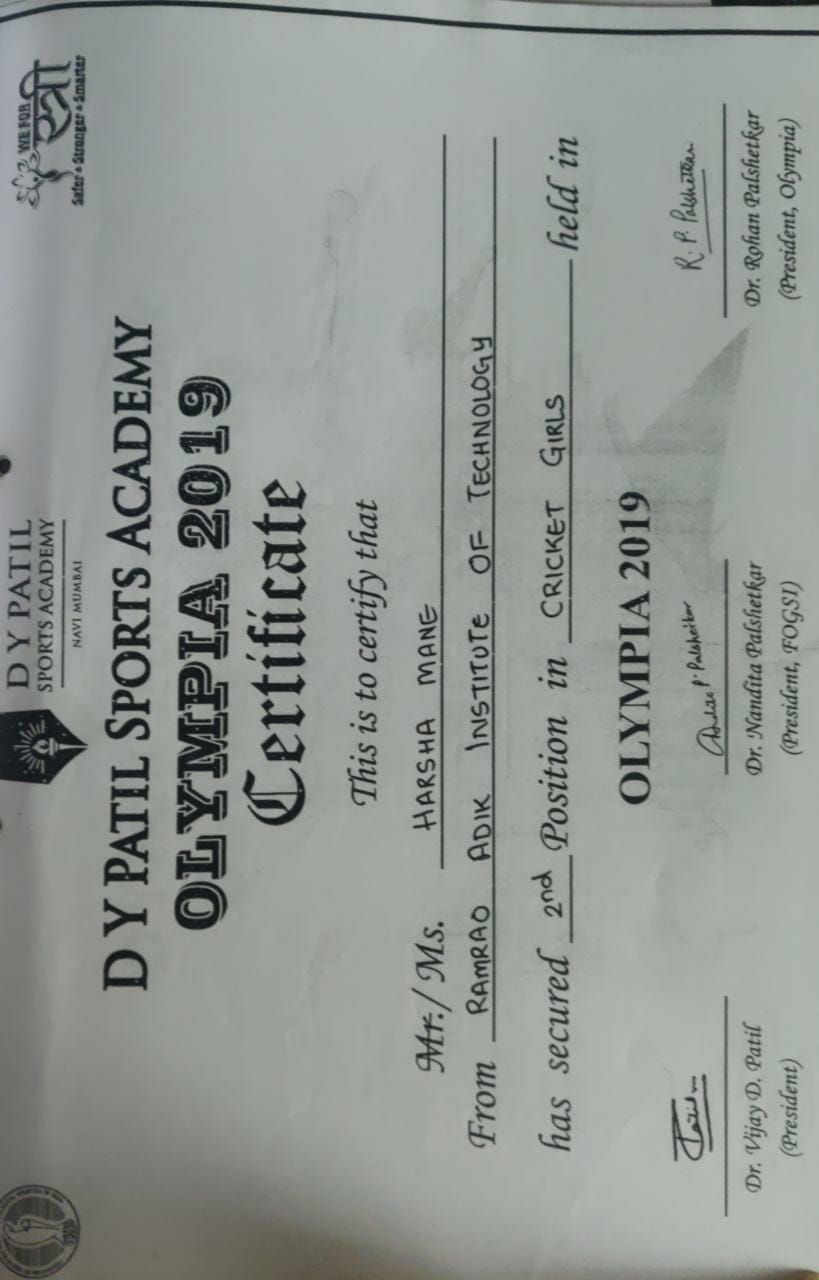 D Y PATIL
SPORTS ACADEMY
NAVI MUMBAI
WE FOR
स्त्री
Safer • Stronger • Smarter
D Y PATIL SPORTS ACADEMY
OLYMPIA 2019
Certificate
This is to certify that
Mr./ Ms. HARSHA MANE
From RAMRAO ADIK INSTITUTE OF TECHNOLOGY
has secured 2nd Position in CRICKET GIRLS held in
OLYMPIA 2019
R. P. Palshetkar
Dr. Vijay D. Patil
(President)
Dr. Nandita Palshetkar
(President, FOGSI)
Dr. Rohan Palshetkar
(President, Olympia)